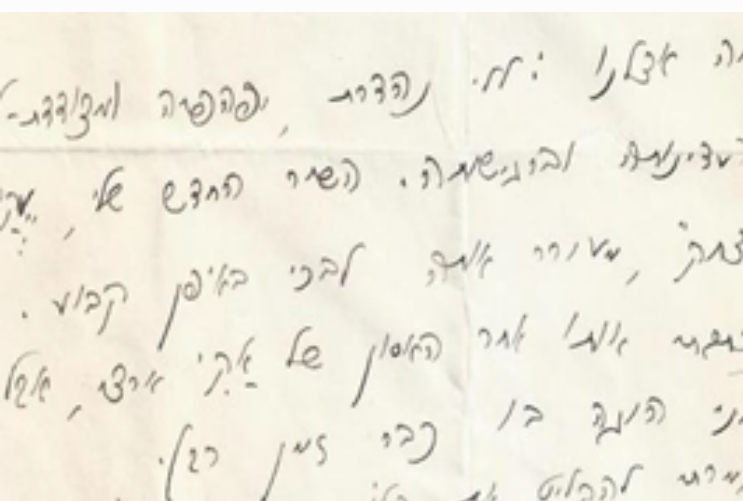 אצלנו: ללי נהדרת, יפהפיה ומצודדת-
בעדינותה וברגישותה. השיר החדש שלי,
מעורר אותה לבכי באופן קבוע.
אותו אחר האסון של אקי ארצי, אבל
הוגה בו כבר זמן רב.
להחליט